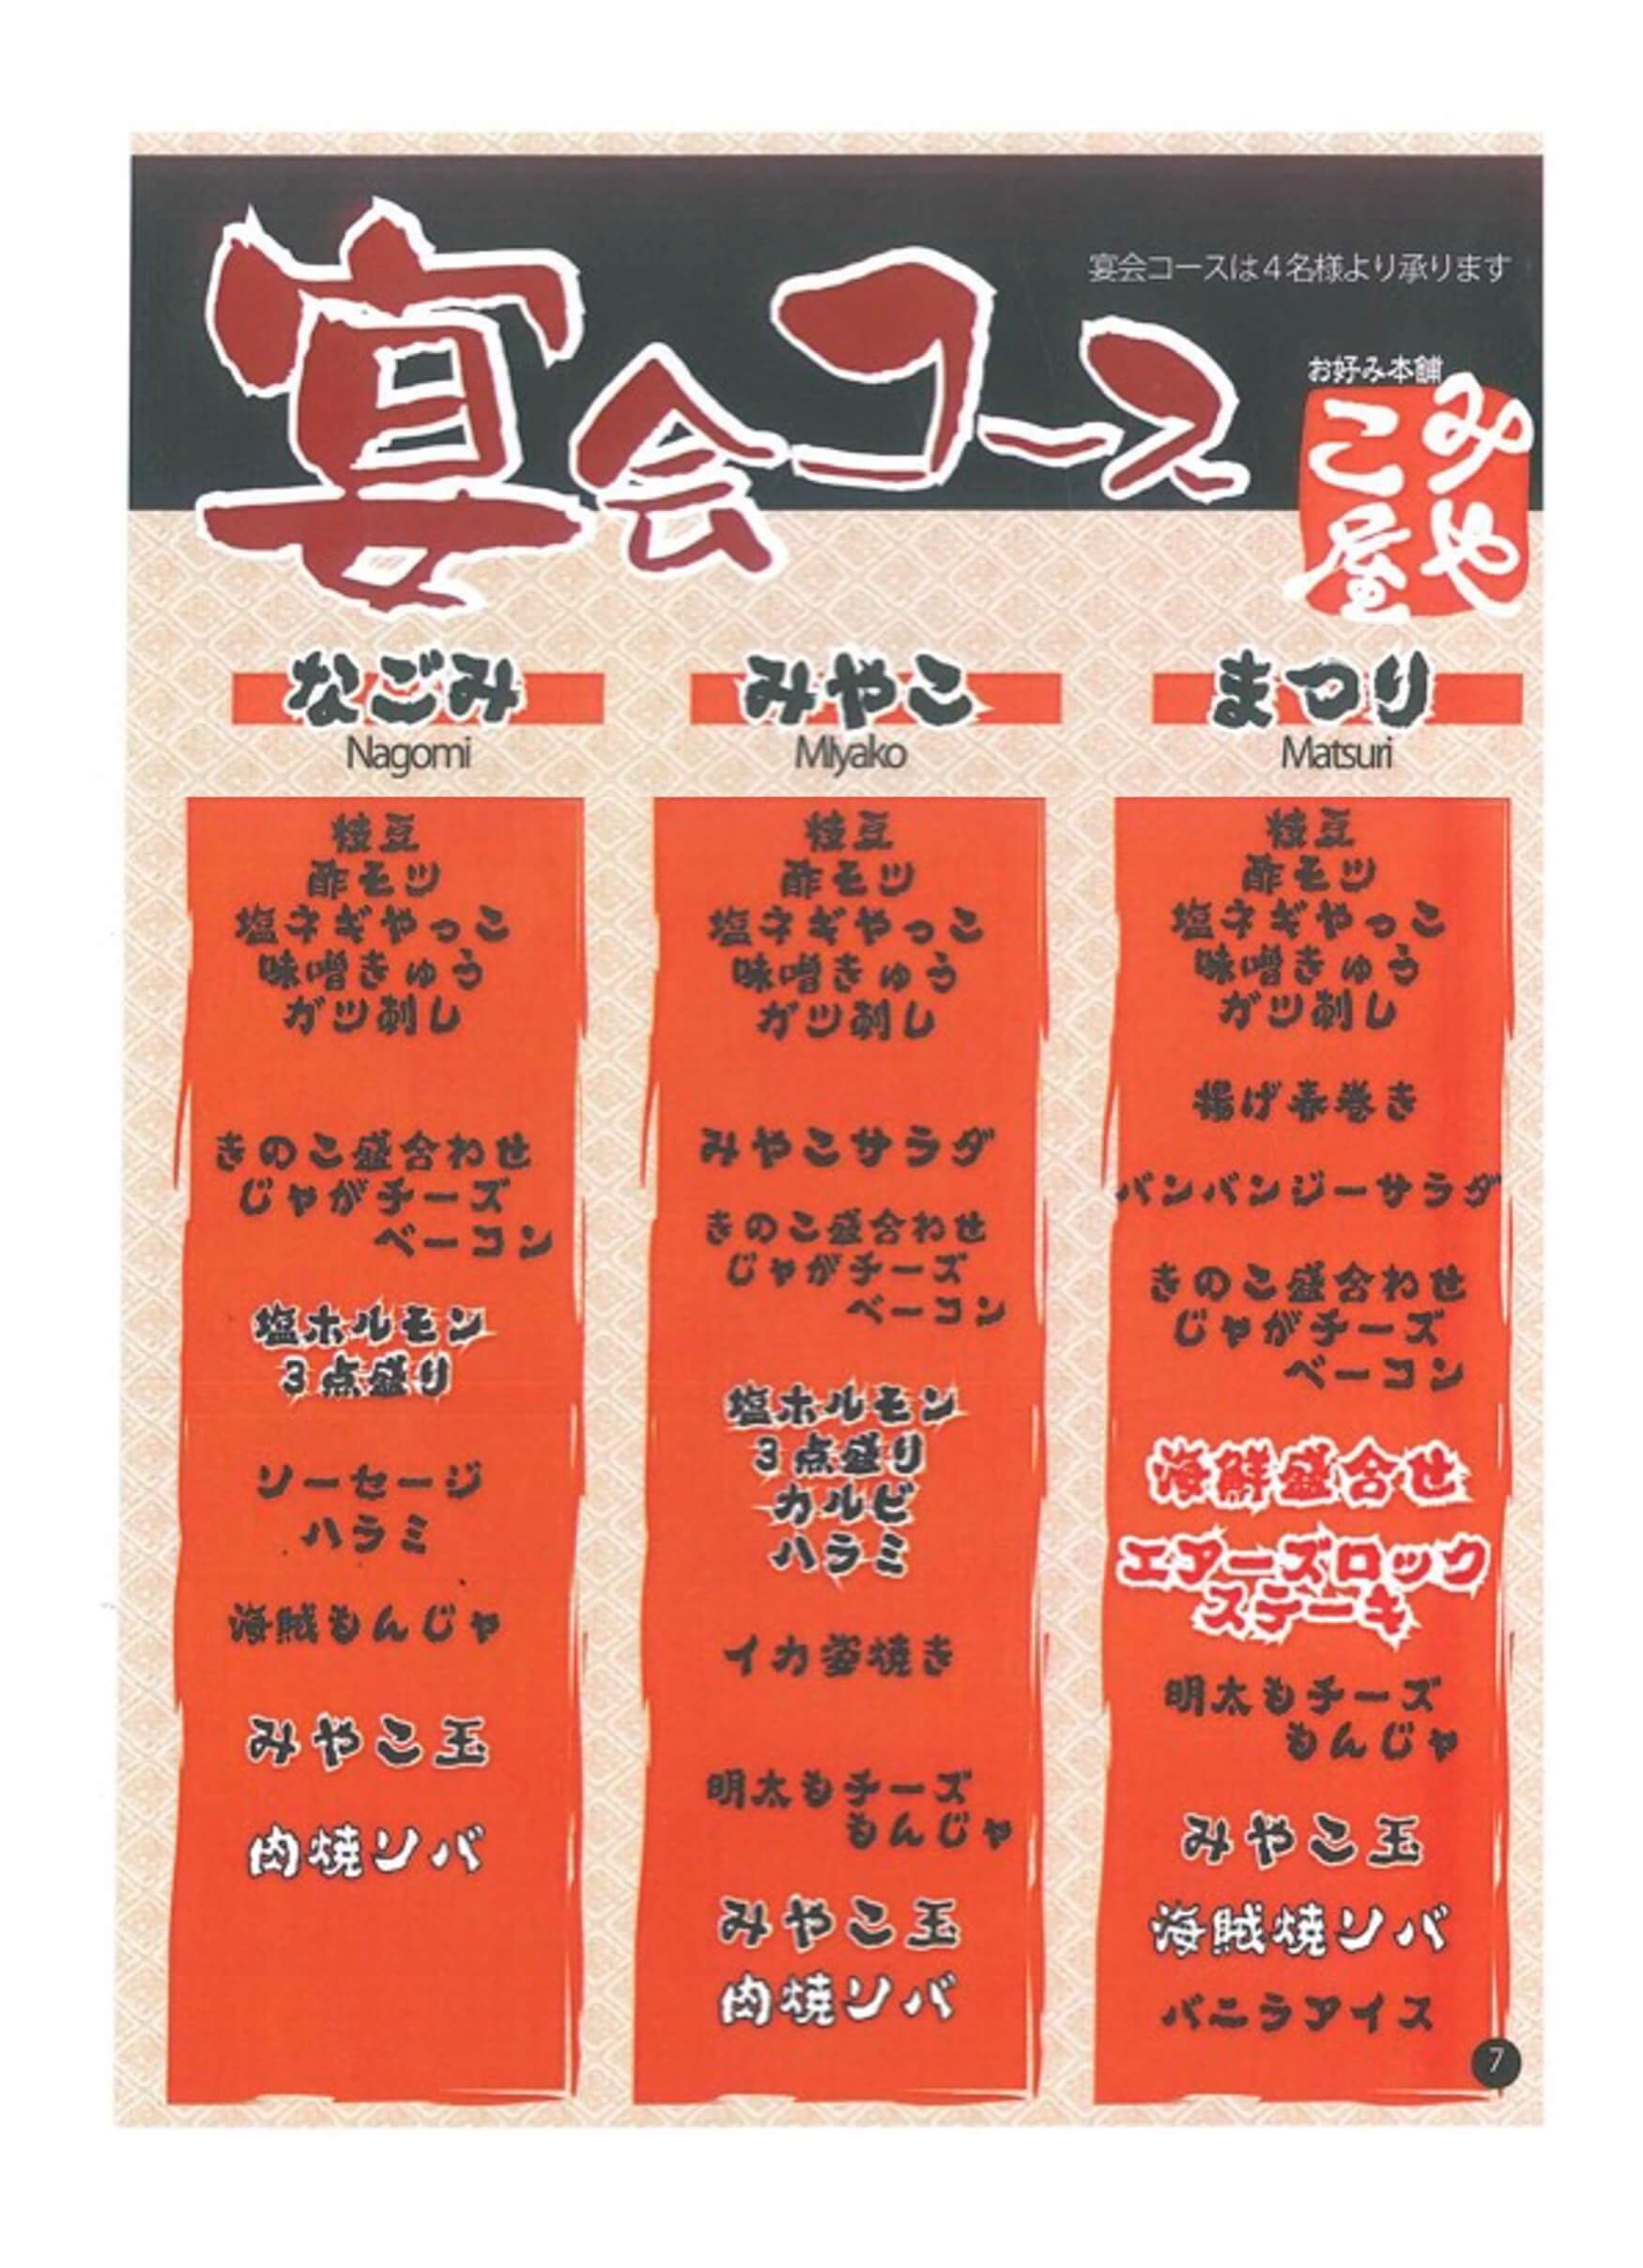 宴会コース
宴会コースは4名様より承ります
お好み本舗
みや
こ屋
なごみ
Nagomi
枝豆
酢モツ
塩ネギやっこ
味噌きゅう
ガツ刺し
きのこ盛合わせ
じゃがチーズ
ベーコン
塩ホルモン
3点盛り
ソーセージ
ハラミ
海賊もんじゃ
みやこ玉
肉焼ソバ
みやこ
MIyako
枝豆
酢モツ
塩ネギやっこ
味噌きゅう
ガツ刺し
みやこサラダ
きのこ盛合わせ
じゃがチーズ
ベーコン
塩ホルモン
3点盛り
カルビ
ハラミ
イカ姿焼き
明太もチーズ
もんじゃ
みやこ玉
肉焼ソバ
まつり
Matsuri
枝豆
酢モツ
塩ネギやっこ
味噌きゅう
ガツ刺し
揚げ春巻き
バンバンジーサラダ
きのこ盛合わせ
じゃがチーズ
ベーコン
海鮮盛合せ
エアーズロック
ステーキ
明太もチーズ
もんじゃ
みやこ玉
海賊焼ソバ
バニラアイス
7